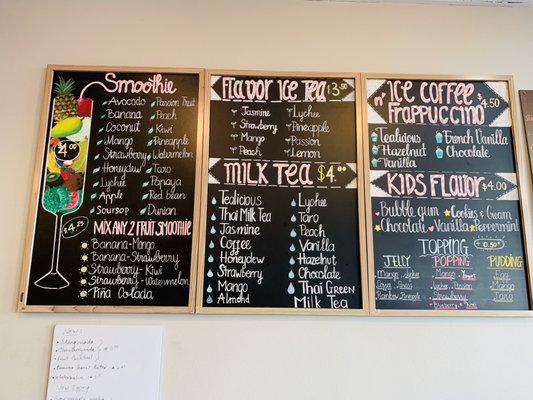 Smoothie
Avocado
Banana
Coconut
Mango
Strawberry
Honeydew
Lychee
Apple
Soursop
Passion Fruit
Peach
Kiwi
Pineapple
Watermelon
Taro
Papaya
Red bean
Durian
$4.00
$4.25
Mix Any 2 Fruit Smoothie
Banana-Mango
Banana-Strawberry
Strawberry-Kiwi
Strawberry-Watermelon
Piña Colada
Flavor Ice Tea $3.50
Jasmine
Strawberry
Mango
Peach
Lychee
Pineapple
Passion
Lemon
Milk Tea $4.00
Tealicious
Thai Milk Tea
Jasmine
Coffee
Honeydew
Strawberry
Mango
Almond
Lychee
Taro
Peach
Vanilla
Hazelnut
Chocolate
Thai Green
Milk Tea
Ice Coffee
Frappuccino $4.50
Tealicious
Hazelnut
Vanilla
French Vanilla
Chocolate
Kids Flavor $4.00
Bubble gum
Chocolate
Vanilla
Cookies & Cream
Peppermint
Topping $0.50
Jelly
Mango
Rainbow
Pineapple
Popping
Mango
Lychee
Passion
Strawberry
Blueberry
Pudding
Egg
Mango
Taro
New: